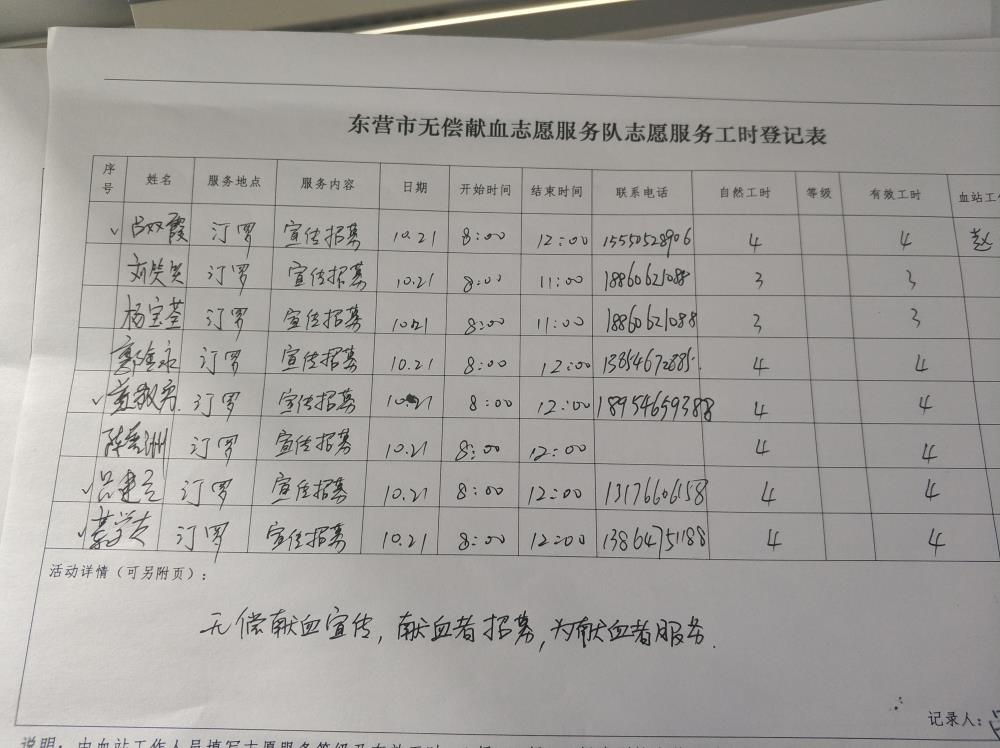 东营市无偿献血志愿服务队志愿服务工时登记表
序号 姓名 服务地点 服务内容 日期 开始时间 结束时间 联系电话 自然工时 等级 有效工时 血站工
✓ 吕双霞 汀罗 宣传招募 10.21 8:00 12:00 15550528906 4 4 赵
刘笑笑 汀罗 宣传招募 10.21 8:00 11:00 18860621088 3 3
杨宝荃 汀罗 宣传招募 10.21 8:00 11:00 18860621088 3 3
汀罗 宣传招募 10.21 8:00 12:00 13854672885. 4 4
✓ 汀罗 宣传招募 10.21 8:00 12:00 18954659388 4 4
汀罗 宣传招募 10.21 8:00 12:00 4 4
✓ 吕建 汀罗 宣传招募 10.21 8:00 12:00 13176606158 4 4
✓ 汀罗 宣传招募 10.21 8:00 12:00 13864751188 4 4
活动详情（可另附页）：
无偿献血宣传，献血者招募，为献血者服务.
记录人：
说明：由血站工作人员填写志愿服务等级及有效工时